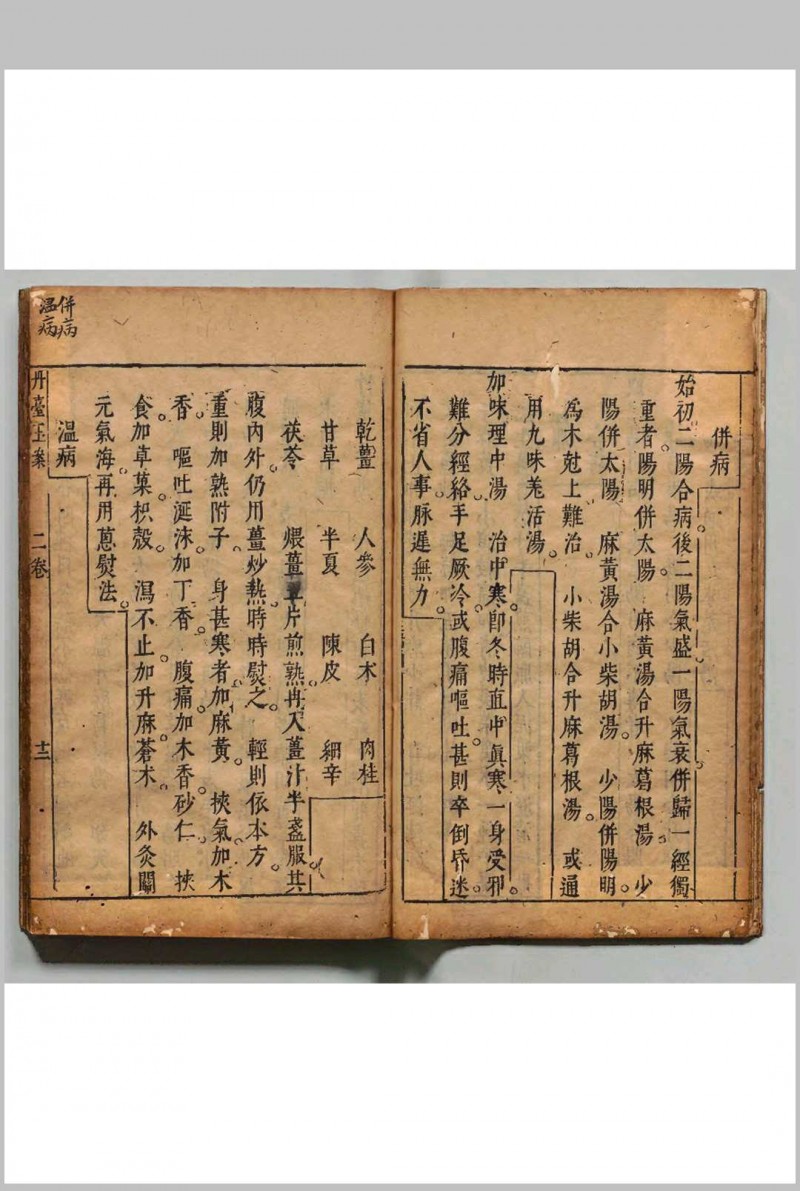 併病
始初二陽合病後二陽氣盛一陽氣衰併歸一經獨
重者陽明併太陽 麻黃湯合升麻葛根湯 少
陽併太陽 麻黃湯合小柴胡湯 少陽併陽明
爲木尅上難治 小柴胡合升麻葛根湯 或通
用九味羌活湯
加味理中湯 治中寒卽冬時直中眞寒一身受邪
難分經絡手足厥冷或腹痛嘔吐甚則卒倒昏迷
不省人事脉遲無力
乾薑 人參 白朮 肉桂
甘草 半夏 陳皮 細辛
茯苓 煨薑 片煎熟再入薑汁半盞服其
腹內外仍用薑炒熱時時熨之 輕則依本方
重則加熟附子 身甚寒者加麻黃 挾氣加木
香 嘔吐涎沫加丁香 腹痛加木香砂仁 挾
食加草菓枳殼 瀉不止加升麻蒼朮 外灸關
元氣海再用蔥熨法
溫病
丹臺玉案 二卷 十二
併病
溫病